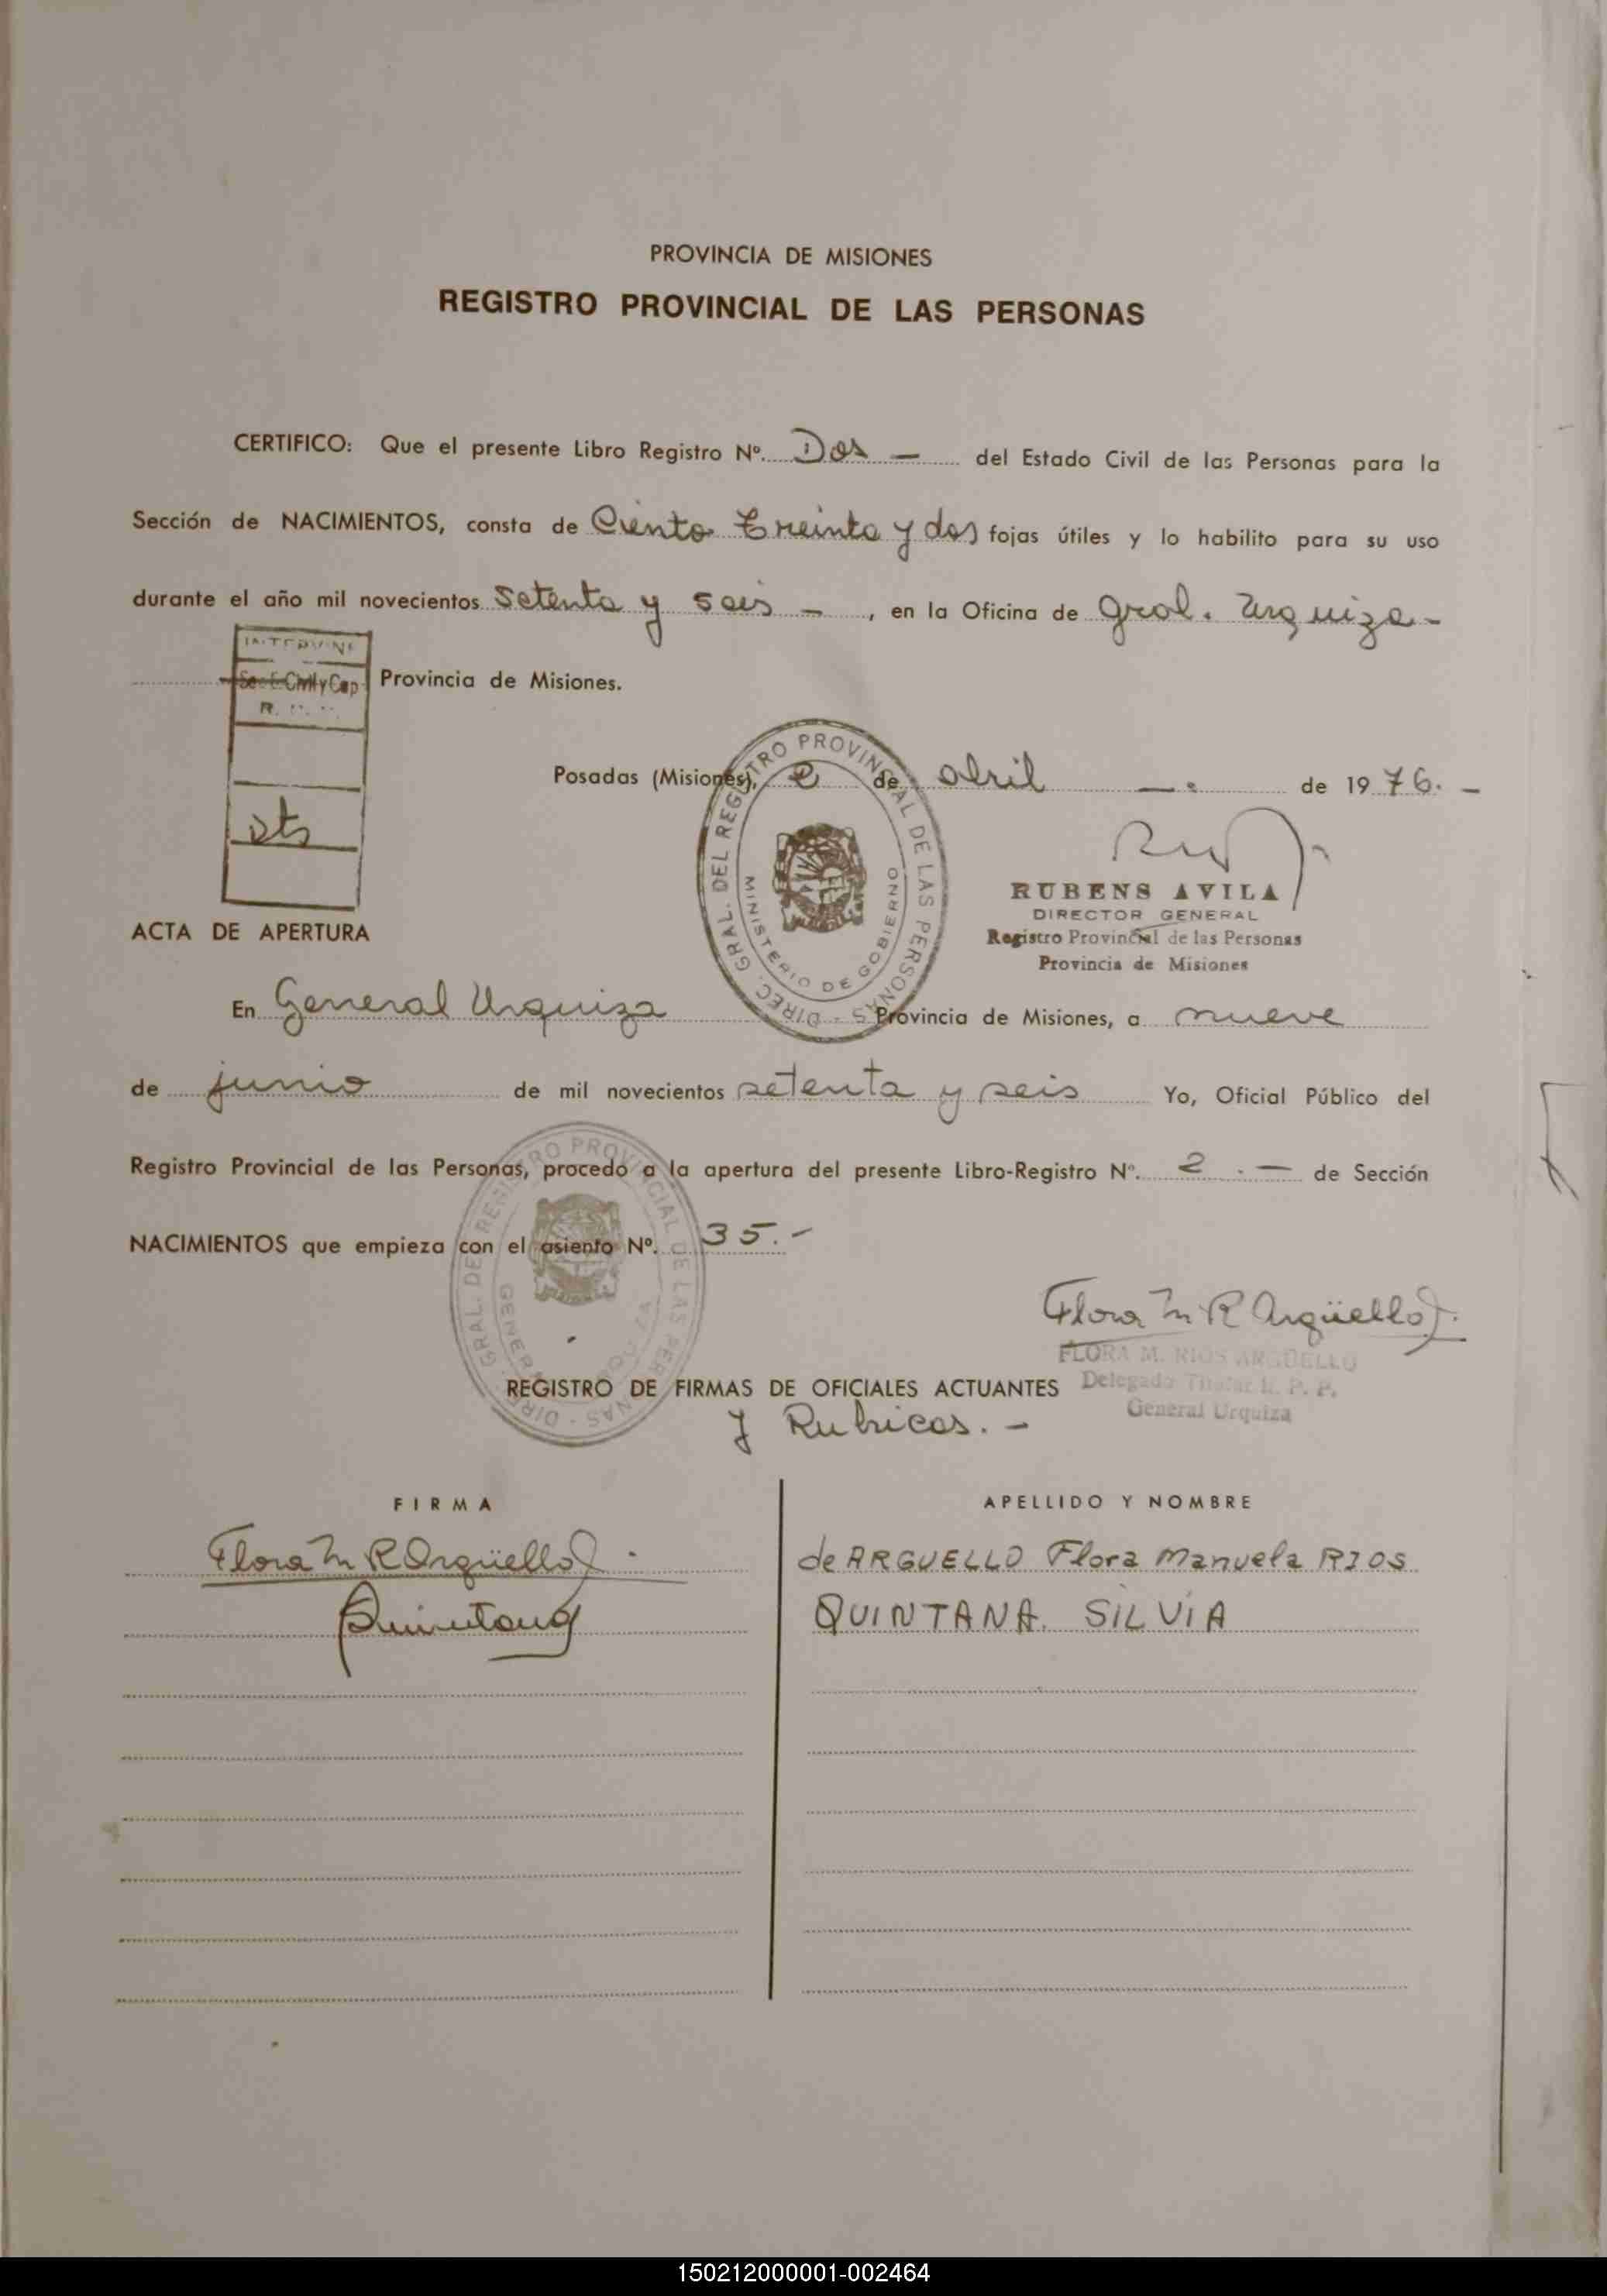 PROVINCIA DE MISIONES
REGISTRO PROVINCIAL DE LAS PERSONAS
CERTIFICO: Que el presente Libro Registro Nº. Dos — del Estado Civil de las Personas para la
Sección de NACIMIENTOS, consta de Ciento treinta y dos fojas útiles y lo habilito para su uso
durante el año mil novecientos setenta y seis — , en la Oficina de Gral. Urquiza -
INTERVINE
Provincia de Misiones.
Posadas (Misiones), 2 de abril —. de 1976. —
RUBENS AVILA
DIRECTOR GENERAL
Registro Provincial de las Personas
Provincia de Misiones
DIREC. GRAL. DEL REGISTRO PROVINCIAL DE LAS PERSONAS -
MINISTERIO DE GOBIERNO
ACTA DE APERTURA
En General Urquiza Provincia de Misiones, a nueve
de junio de mil novecientos setenta y seis Yo, Oficial Público del
Registro Provincial de las Personas, procedo a la apertura del presente Libro-Registro Nº. 2 . — de Sección
NACIMIENTOS que empieza con el asiento Nº. 35. -
DIREC. GRAL. DEL REGISTRO PROVINCIAL DE LAS PERSONAS -
Flora M R Argüello
FLORA M. RIOS ARGÜELLO
Delegado Titular R. P. P.
General Urquiza
REGISTRO DE FIRMAS DE OFICIALES ACTUANTES
y Rubricas. -
FIRMA APELLIDO Y NOMBRE
Flora M R Argüello de ARGUELLO Flora Manuela RIOS
Quintana QUINTANA. SILVIA
150212000001-002464